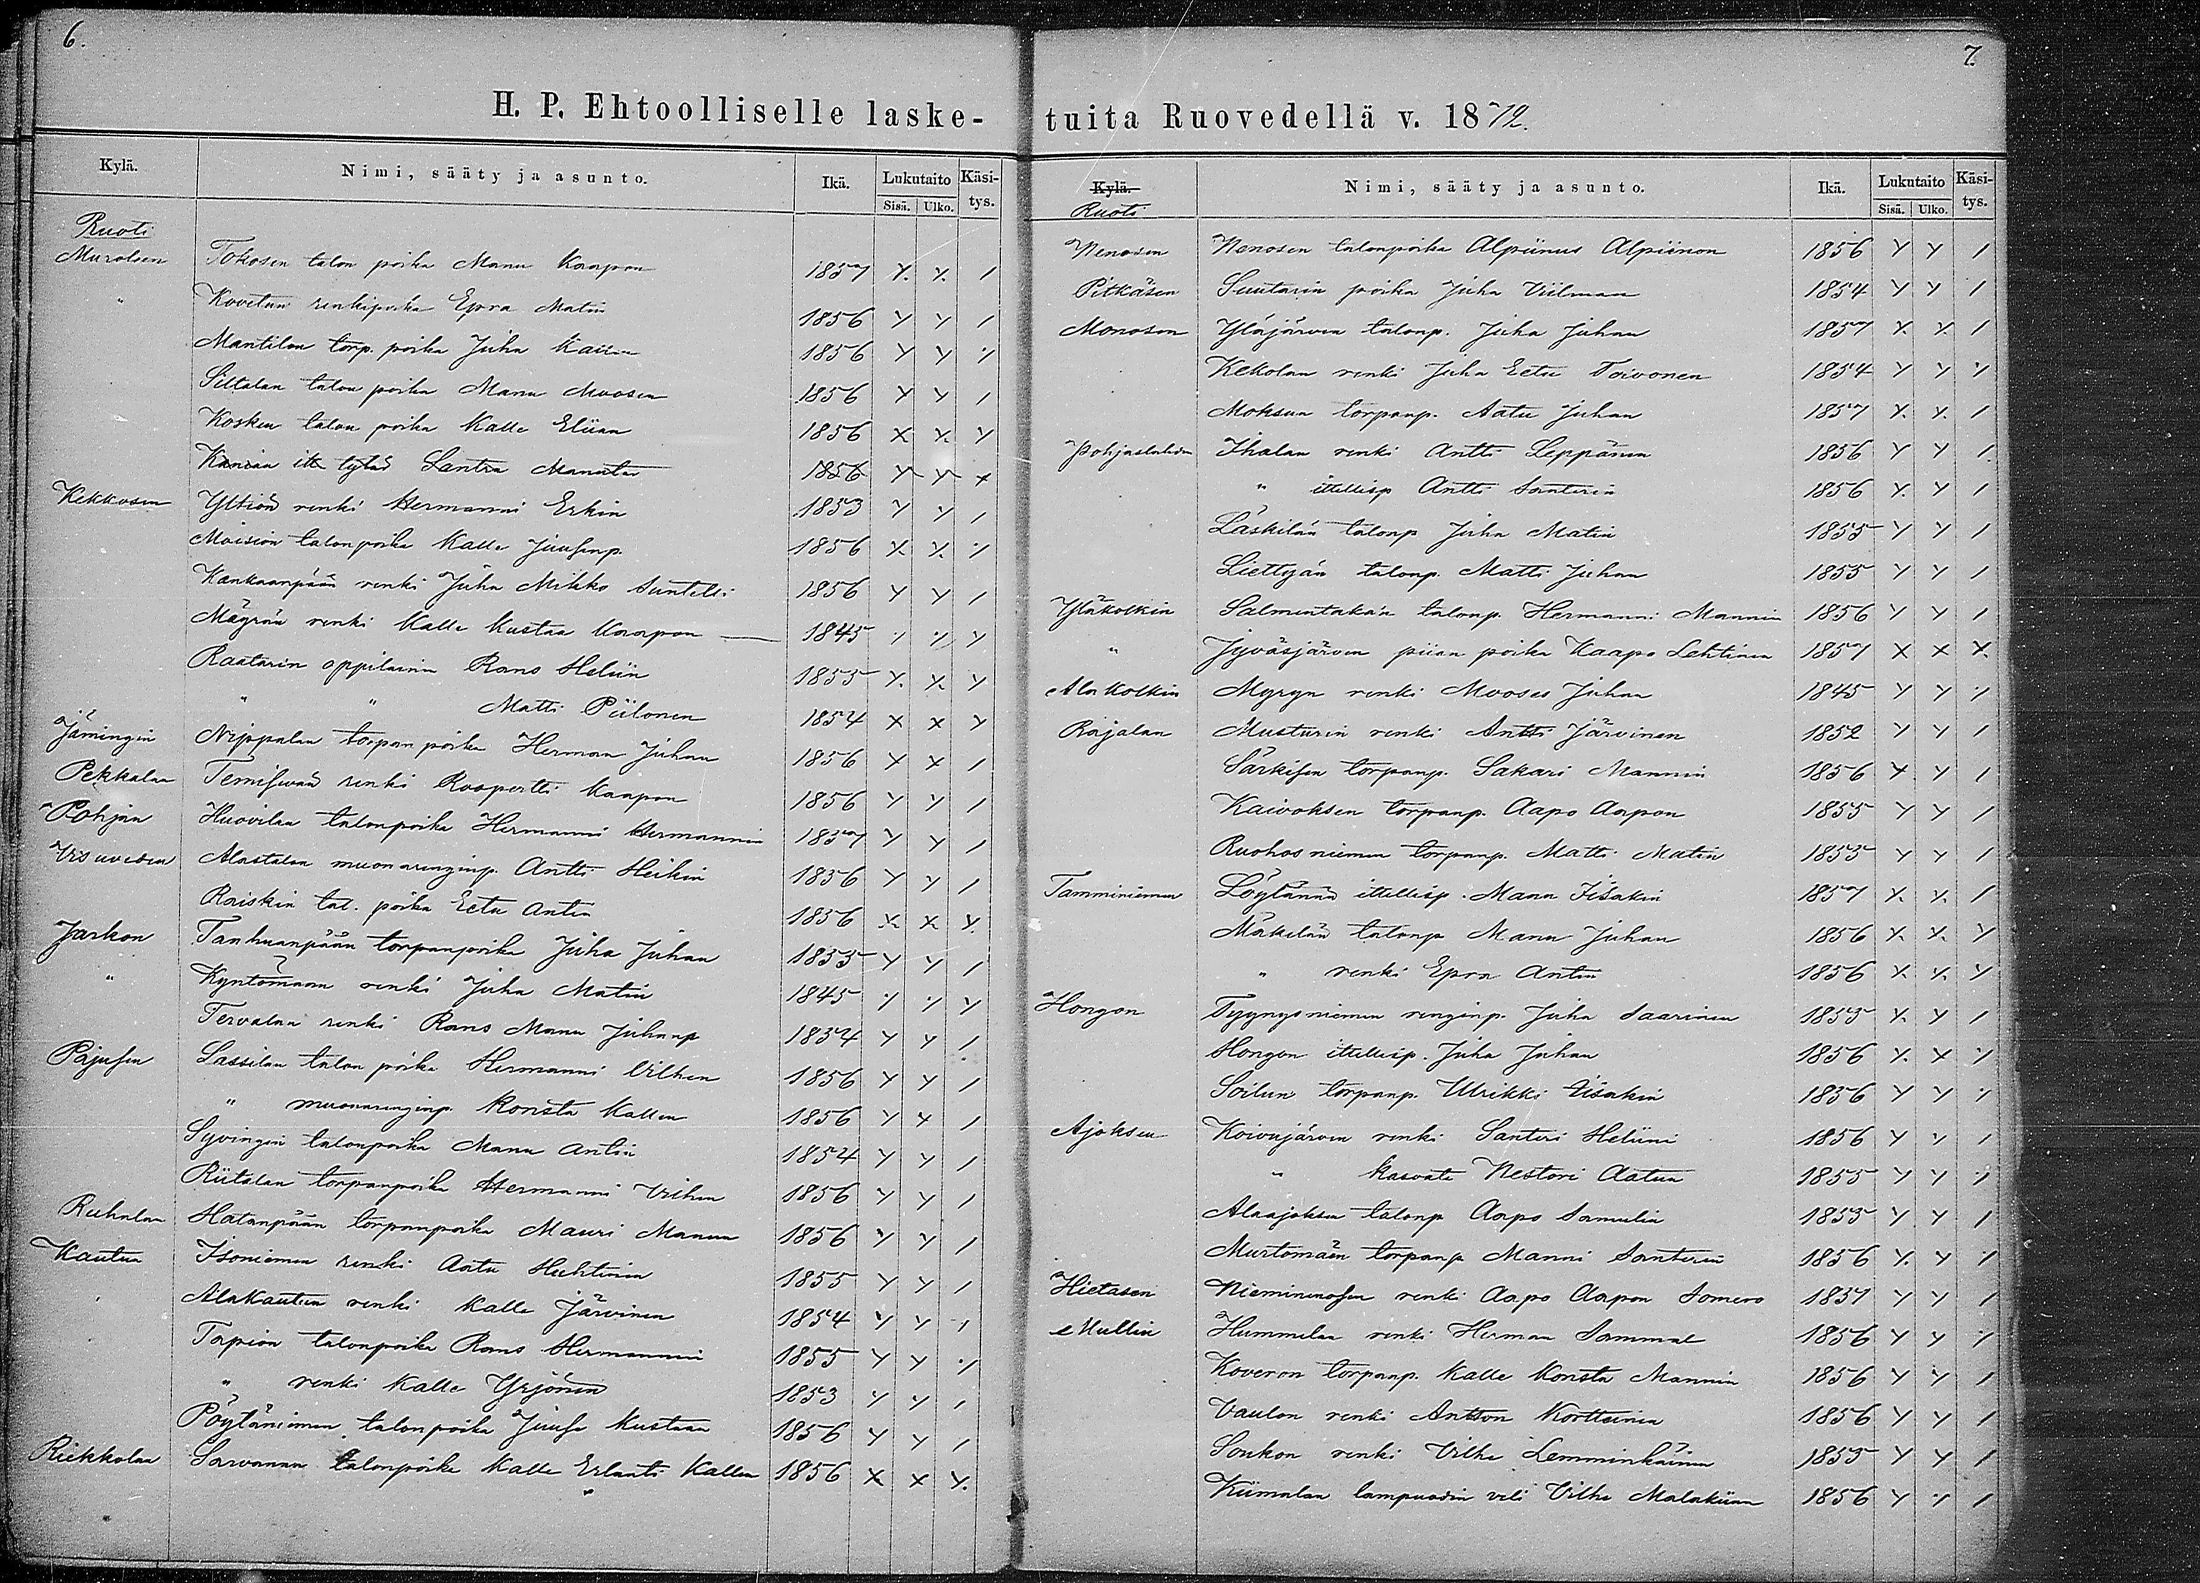 6.
H. P. Ehtoolliselle laske-
Kylä. Nimi, sääty ja asunto. Ikä. Lukutaito Käsi-
Sisä. Ulko. tys.
Ruoti
Murolsen Tokosen talon poika Manu Kaapon 1857 Y. Y. /
" renkipoika Epra Matin 1856 Y Y /
Mantilan torp. poika Juha 1856 Y Y ·/
Siltalan talon poika Manu Moosen 1856 Y Y /
Kosken talon poika Kalle Eliian 1856 X Y. Y
itt tytär Santra 1856 Y Y X
Kekkosen Yltiön renki Hermanni Erkin 1853 Y Y /
Moision talonpoika Kalle Juusenp. 1856 Y. Y. ·/
Kankaanpään renki Juha Mikko Suntell: 1856 Y Y /
Mäyrän renki Kalle Kustaa Kaapon — 1845 ·/ ·/ Y
Raatarin oppilainen Rans Heliin 1855 Y. X. Y
" " Matti Piilonen 1854 X X Y
Jämingin Nippalan torpan poika Herman Juhan 1856 X X /
Pekkalan renki Roopertti Kaapon 1856 Y Y /
Pohjan Huovilan talonpoika Hermanni Hermannin 1857 Y Y /
Visuveden Alastalon muonarenginp. Antti Heikin 1856 Y Y /
Raiskin tal. poika Eetu Antin 1856 X X Y.
Jarkon Tanhuanpään torpanpoika Juha Juhan 1855 Y Y /
" Kyntömaan renki Juha Matin 1845 ·/ ·/ Y
Tervalan renki Rans Manu Juhanp 1854 Y Y /
Pajusen Lassilan talon poika Hermanni Vilhen 1856 Y Y /
" muonarenginp. Konsta Kallen 1856 Y Y /
Syvingin talonpoika Manu Antin 1854 Y Y /
Riitalan torpanpoika Hermanni Vilhen 1856 Y Y /
Ruhalan Hatanpään torpanpoika Mauri Manun 1856 Y Y /
Kautun Isoniemen renki Aatu Huhtinen 1855 Y Y /
Alakautun renki Kalle Järvinen 1854 Y Y /
Tapion talonpoika Rans Hermannin 1855 Y Y ·/
" renki Kalle Yrjönen 1853 Y Y /
Pöytäniemen talonpoika Juuse Kustaan 1856 Y Y /
Riekkolan Sarvanan talonpoika Kalle Erlanti Kallen 1856 X X Y.
7.
tuita Ruovedellä v. 1872.
Kylä. Nimi, sääty ja asunto. Ikä. Lukutaito Käsi-
Ruoti Sisä. Ulko. tys.
Nenosen Nenosen talonpoika Alpiinus Alpiinon 1856 Y Y /
Pitkäsen Suutarin poika Juha Viilman 1854 Y Y /
Monoson Yläjärven talonp. Juha Juhan 1857 Y. Y. /
Kekolan renki Juha Eetu Toivonen 1854 Y Y ·/
Moksun torpanp. Aatu Juhan 1857 Y. Y. /
Pohjaslahden Ihalan renki Antti Leppänen 1856 Y Y /
" ittellisp Antti Santerin 1856 Y. Y /
Läskilän talonp Juha Matin 1855 Y Y /
talonp. Matti Juhan 1855 Y Y /
Yläkolkin Salmentakan talonp. Hermanni Mannin 1856 Y Y /
" Jyväsjärven piian poika Kaapo Lehtinen 1857 X X X.
Alakolkin Myryn renki Mooses Juhan 1845 Y Y ·/
Rajalan Musturin renki Antti Järvinen 1852 Y Y /
Särkisen torpanp. Sakari Mannin 1856 Y Y /
Kaivoksen torpanp. Aapo Aapon 1855 Y Y /
Ruohosniemen torpanp. Matti Matin 1855 Y Y /
Tamminiemen Löytänän ittellisp. Manu Iisakin 1857 Y. Y. /
Mäkelän talonp Manu Juhan 1856 Y. Y. Y
" renki Epra Antin 1856 Y. Y. Y
Hongon Tyynysniemen renginp. Juha Saarinen 1855 Y. Y /
Hongon ittellisp. Juha Juhan 1856 Y. X ·/
Soilun torpanp. Ulrikki Iisakin 1856 Y Y ·/
Ajoksen Koivujärven renki Santeri Heliini 1856 Y Y /
" kasvate Nestori Aatun 1855 Y Y ·/
Alaajoksen talonp Aapo Samulin 1855 Y Y /
Murtomäen torpanp Manni Santerin 1856 Y. Y ·/
Hietasen renki Aapo Aapon Somero 1857 Y Y /
Mullin Hummelan renki Herman Sammal 1856 Y Y ·/
Koveron torpanp. Kalle Konsta Mannin 1856 Y Y /
Vaulon renki Antton Kortteinen 1856 Y Y /
Soukon renki Vilhe Lemminkäinen 1855 Y Y /
Kiimalan lampuodin veli Vilhe Malakiian 1856 Y Y /